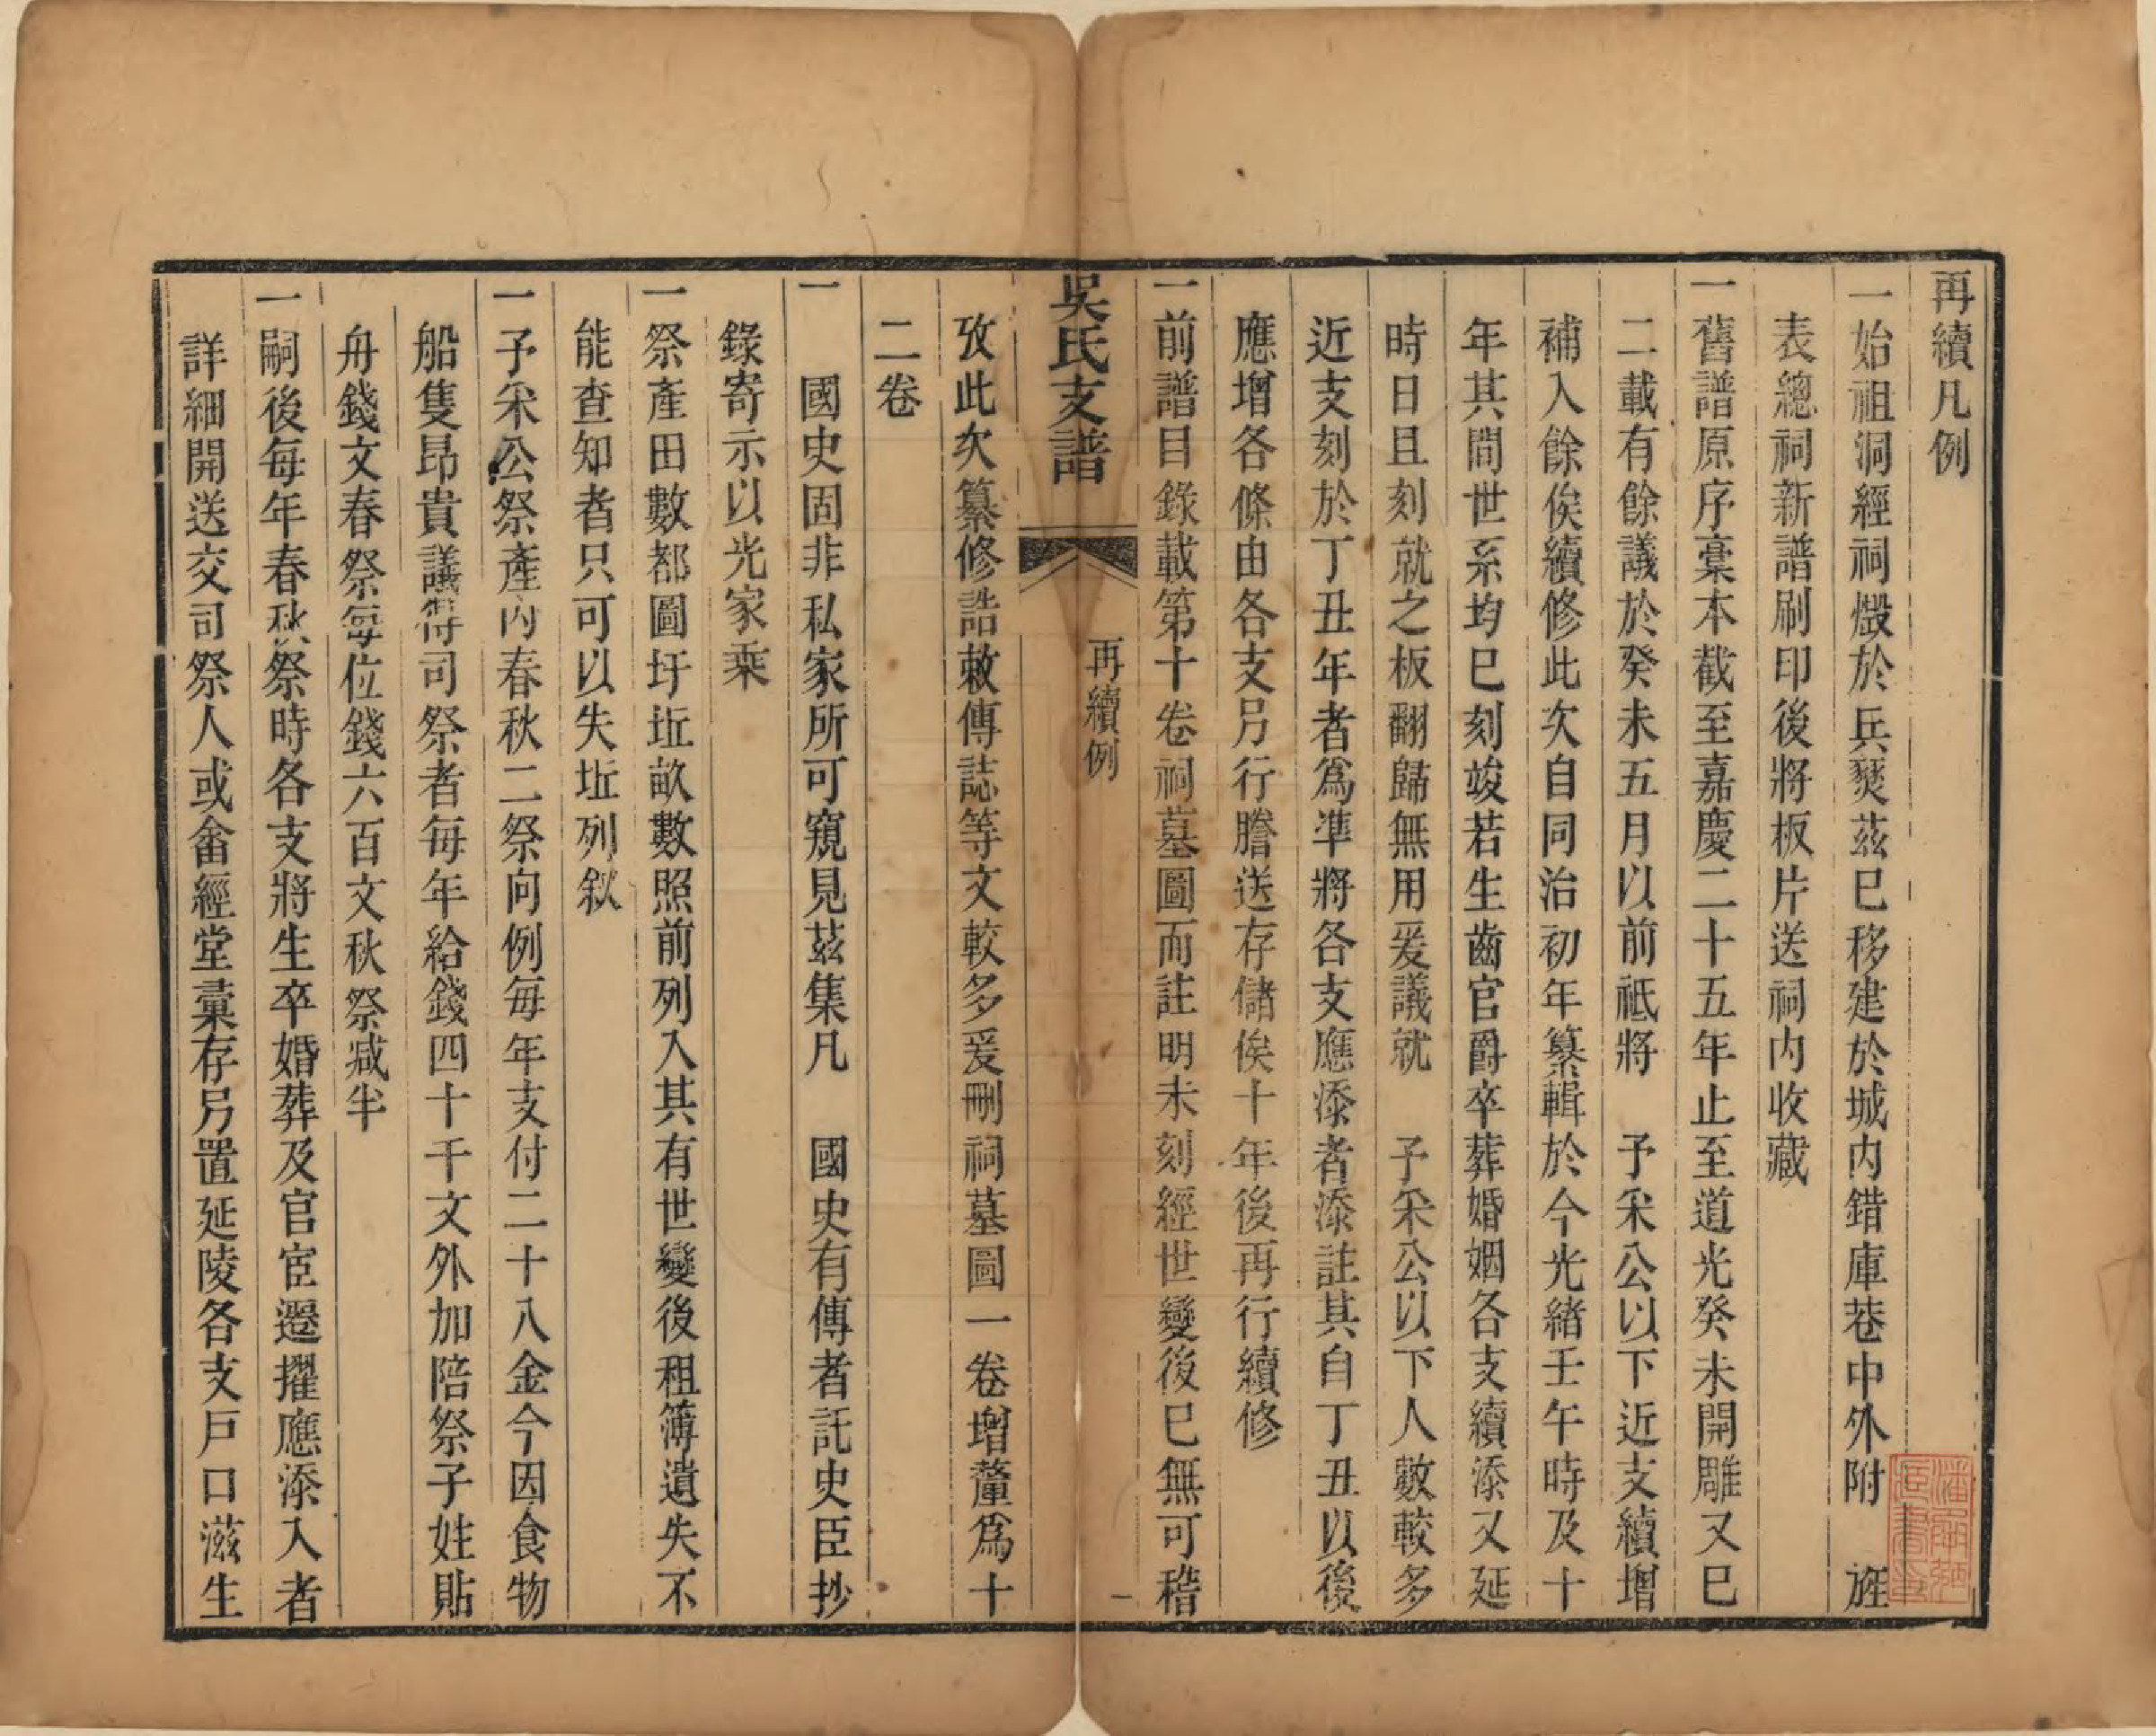 再續凡例
一始祖洞經祠燬於兵燹茲已移建於城内錯庫巷中外附　旌
表總祠新譜刷印後將板片送祠内收藏
一舊譜原序稾本截至嘉慶二十五年止至道光癸未開雕又已
二載有餘議於癸未五月以前祗將　予采公以下近支續增
補入餘俟續修此次自同治初年纂輯於今光緒壬午時及十
年其間世系均已刻竣若生齒官爵卒葬婚姻各支續添又延
時日且刻就之板翻歸無用爰議就　予采公以下人數較多
近支刻於丁丑年者爲準將各支應添者添註其自丁丑以後
應增各條由各支另行謄送存儲俟十年後再行續修
一前譜目錄載第十卷祠墓圖而註明未刻經世變後已無可稽
吳氏支譜
再續例
一
攷此次纂修誥敕傳誌等文較多爰刪祠墓圖一卷增釐爲十
二卷
一　國史固非私家所可窺見茲集凡　國史有傳者託史臣抄
錄寄示以光家乘
一祭產田數都圖圩坵畝數照前列入其有世變後租簿遺失不
能查知者只可以失坵列叙
一予采公祭產内春秋二祭向例每年支付二十八金今因食物
船隻昂貴議得司祭者每年給錢四十千文外加陪祭子姓貼
舟錢文春祭每位錢六百文秋祭減半
一嗣後每年春秋祭時各支將生卒婚葬及官宦遷擢應添入者
詳細開送交司祭人或畬經堂彙存另置延陵各支戶口滋生